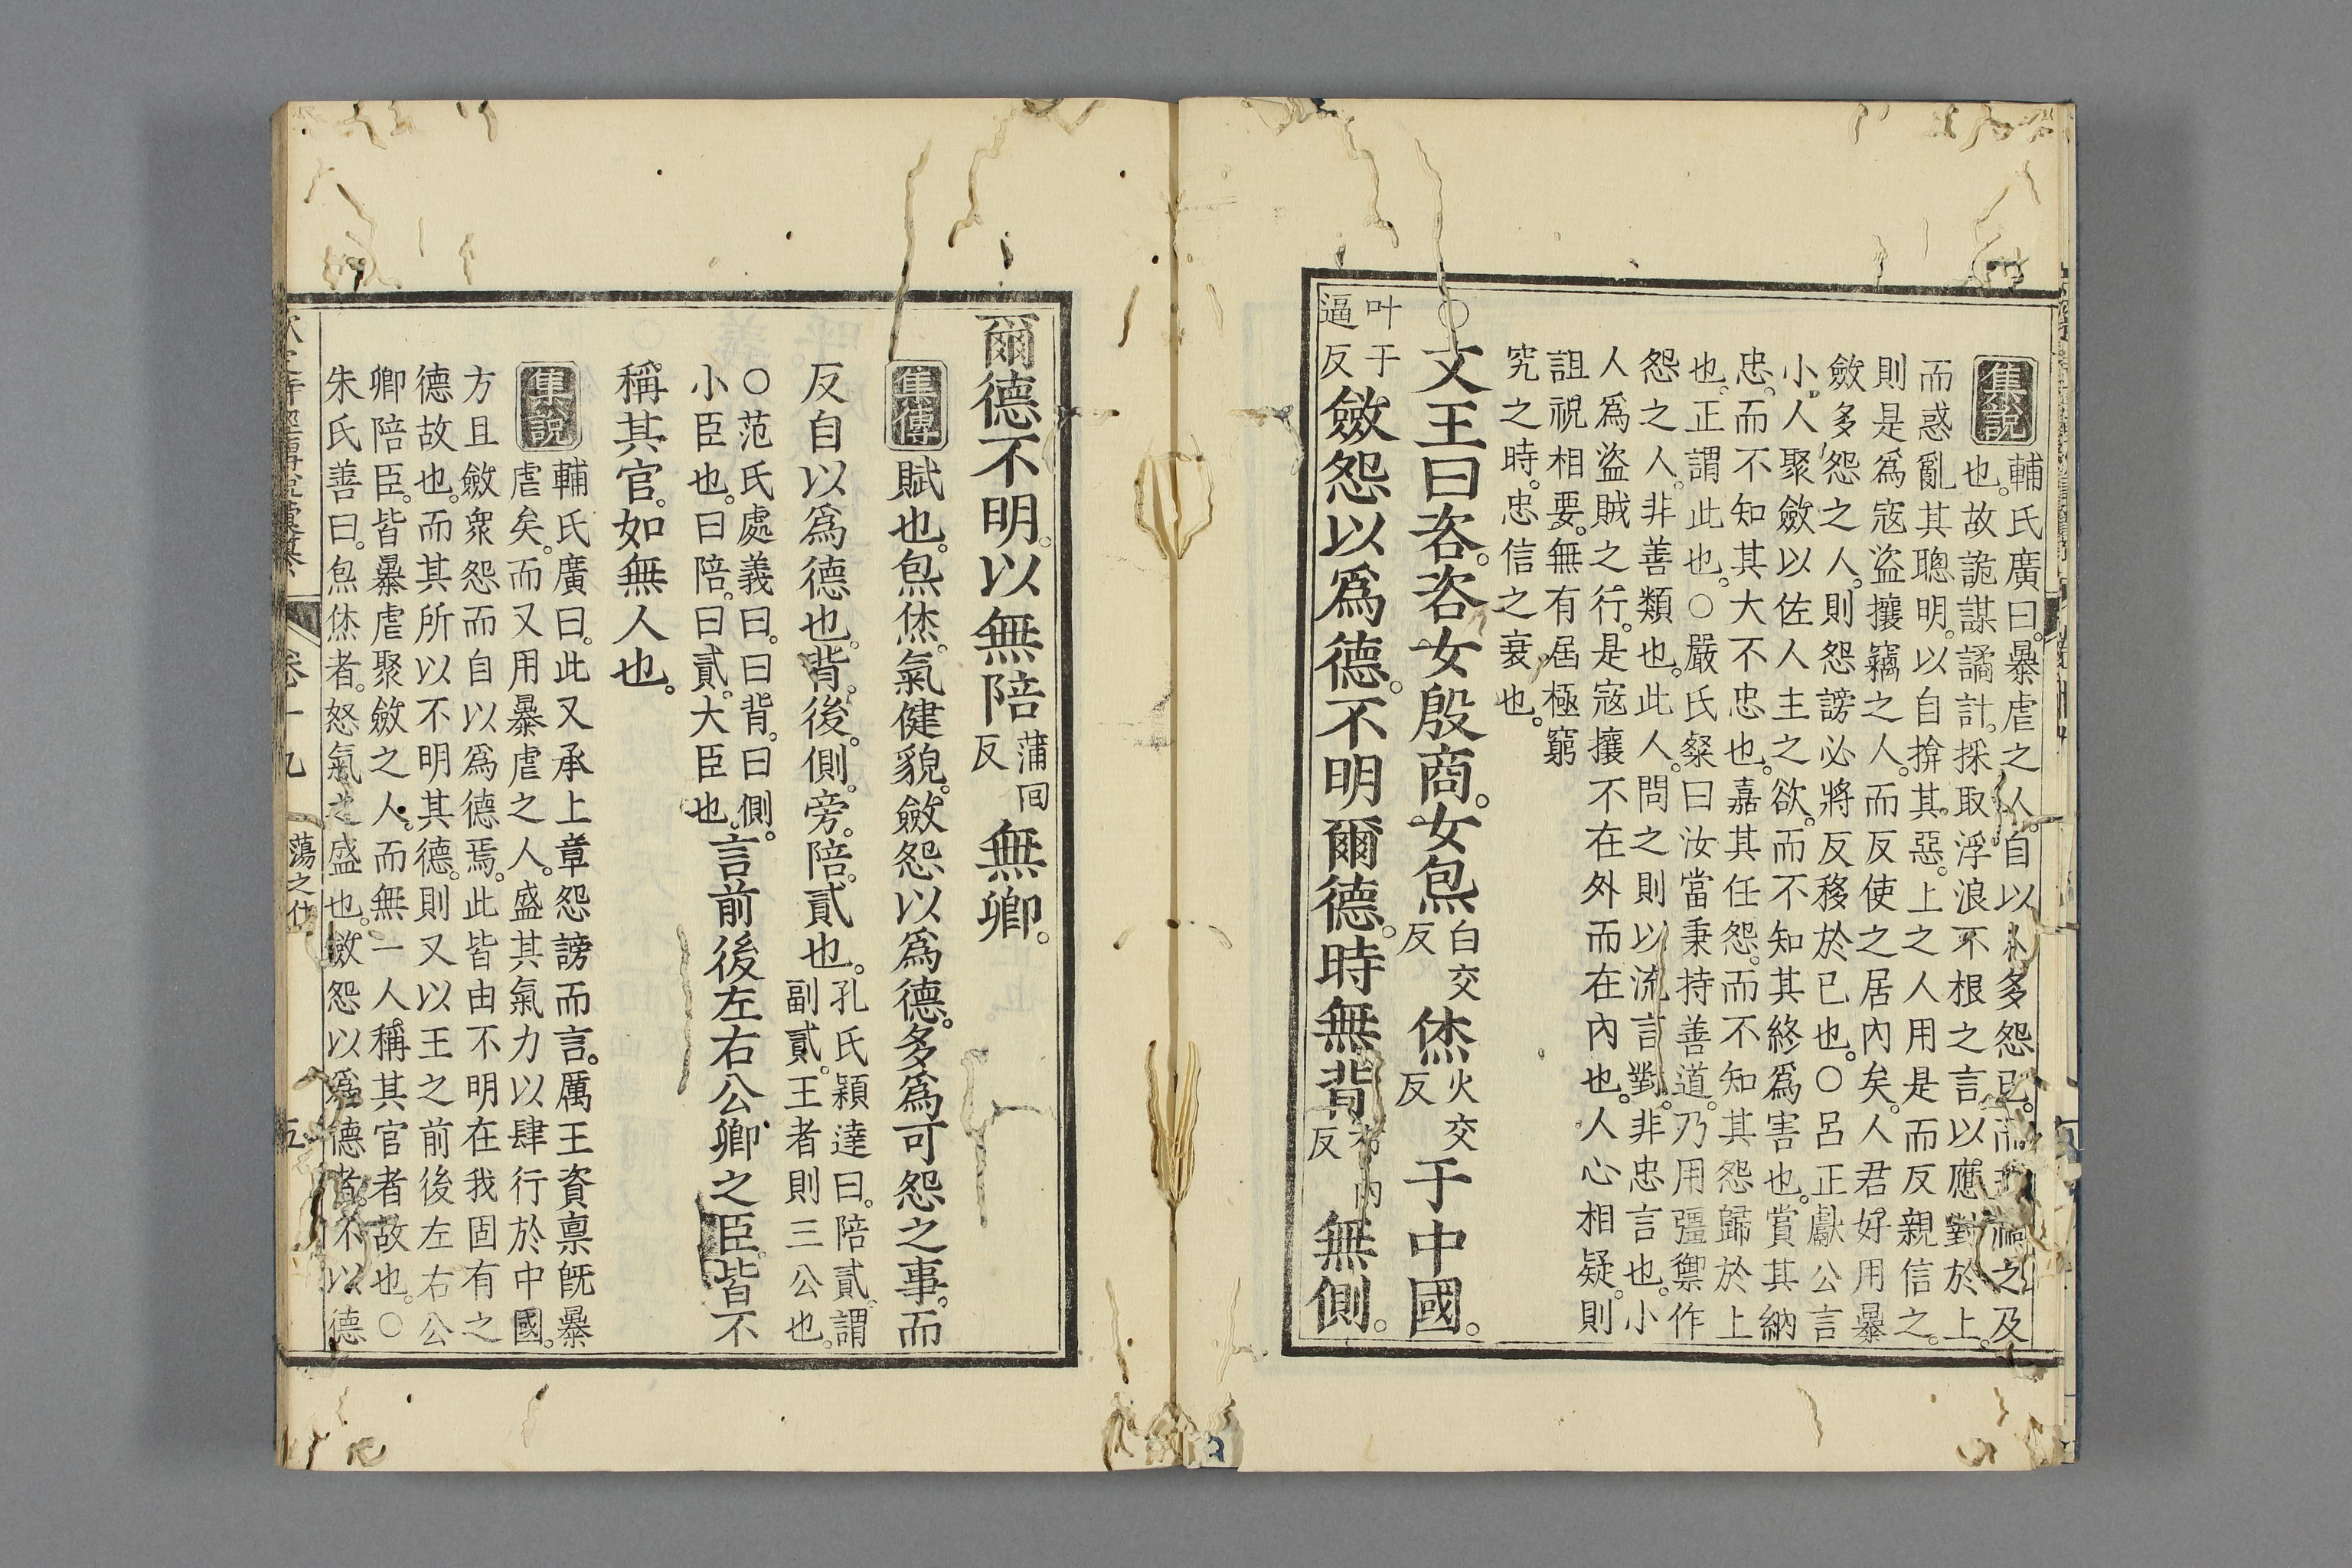 集說 輔氏廣曰。暴虐之人。自以多怨已。禍之及
也。故詭謀譎計。採取浮浪不根之言。以應對於上。
而惑亂其聰明。以自揜其惡。上之人用是而反親信之。
則是爲寇盜攘竊之人。而反使之居內矣。人君好用暴
斂多怨之人。則怨謗必將反移於已也。○呂正獻公言
小人聚斂以佐人主之欲。而不知其終爲害也。賞其納
忠。而不知其大不忠也。嘉其任怨。而不知其怨歸於上
也。正謂此也。○嚴氏粲曰汝當秉持善道。乃用彊禦作
怨之人。非善類也。此人問之則以流言對。非忠言也。小
人爲盜賊之行。是寇攘不在外而在內也。人心相疑。則
詛祝相要。無有屆極窮
究之時。忠信之衰也。
○文王曰咨。咨女殷商。女炰白交反烋火交反于中國。
叶于逼反斂怨以爲德。不明爾德。時無背布內反無側。
爾德不明。以無陪蒲回反無卿。
集傳 賦也。炰烋。氣健貌。斂怨以爲德。多爲可怨之事。而
反自以爲德也。背。後。側。旁。陪。貳也。孔氏穎達曰。陪貳。謂
副貳。王者則三公也。
○范氏處義曰。曰背。曰側。
小臣也。曰陪。曰貳。大臣也。言前後左右公卿之臣。皆不
稱其官。如無人也。
集說 輔氏廣曰。此又承上章怨謗而言。厲王資禀旣暴
虐矣。而又用暴虐之人。盛其氣力以肆行於中國。
方且斂衆怨而自以爲德焉。此皆由不明在我固有之
德故也。而其所以不明其德。則又以王之前後左右公
卿陪臣。皆暴虐聚斂之人。而無一人稱其官者故也。○
朱氏善曰。炰烋者。怒氣之盛也。斂怨以爲德者。不以德
卷十九 蕩之什 五